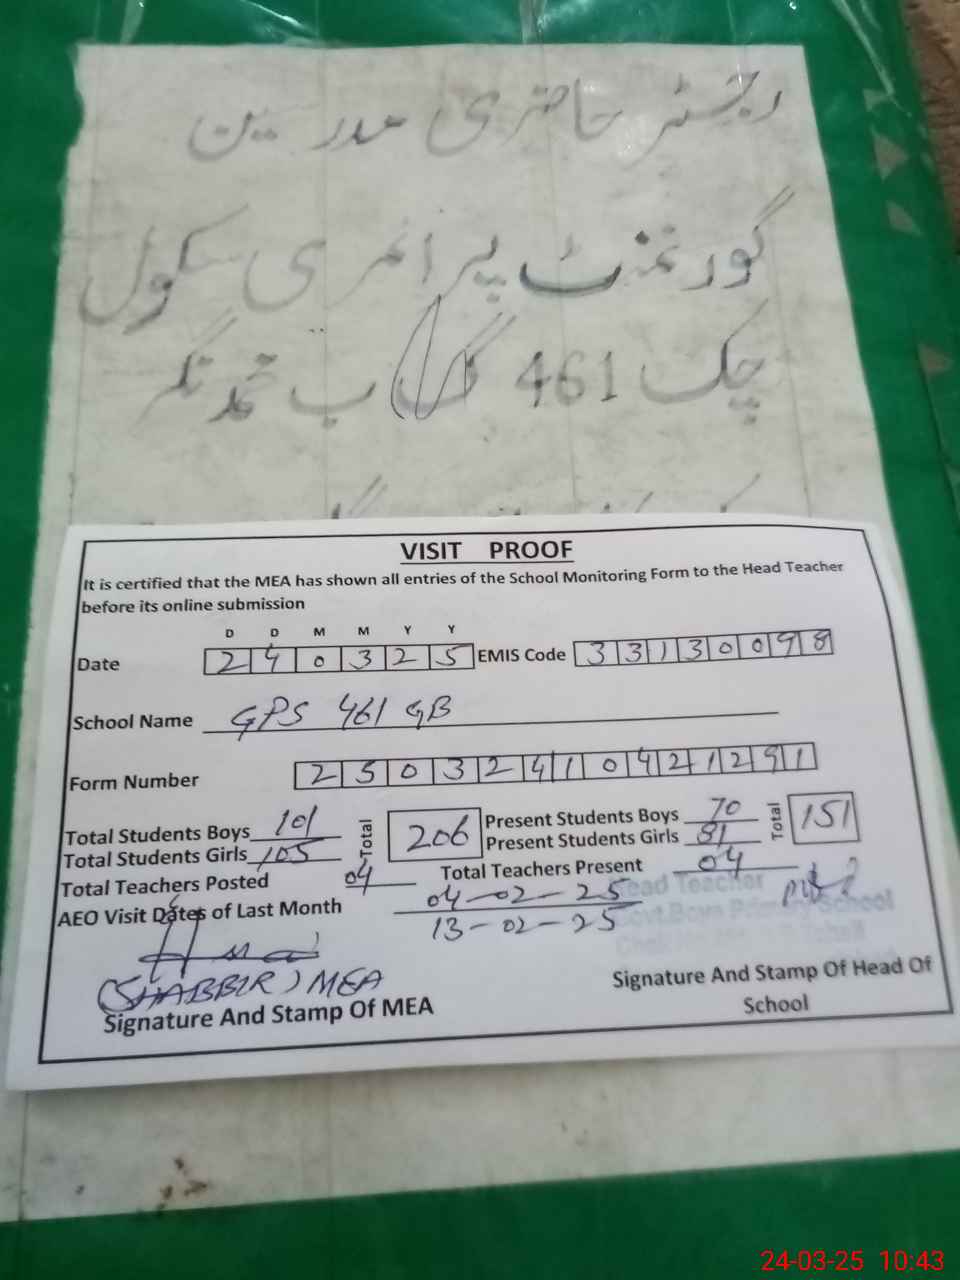 رجسٹر حاضری مدرسین
گورنمنٹ پرائمری سکول
چک 461 گ ب محمد نگر
VISIT PROOF
It is certified that the MEA has shown all entries of the School Monitoring Form to the Head Teacher
before its online submission
D D M M Y Y
Date 2 4 0 3 2 5 EMIS Code 3 3 1 3 0 0 9 8
School Name GPS 461 GB
Form Number 2 5 0 3 2 4 1 0 4 2 1 2 9 1
Total Students Boys 101 Total 206 Present Students Boys 70 Total 151
Total Students Girls 105 Present Students Girls 81
Total Teachers Posted 04 Total Teachers Present 04
AEO Visit Dates of Last Month 04-02-25
13-02-25
Head Teacher
Govt. Boys Primary School
(SHABBIR) MEA
Signature And Stamp Of MEA
Signature And Stamp Of Head Of
School
24-03-25 10:43